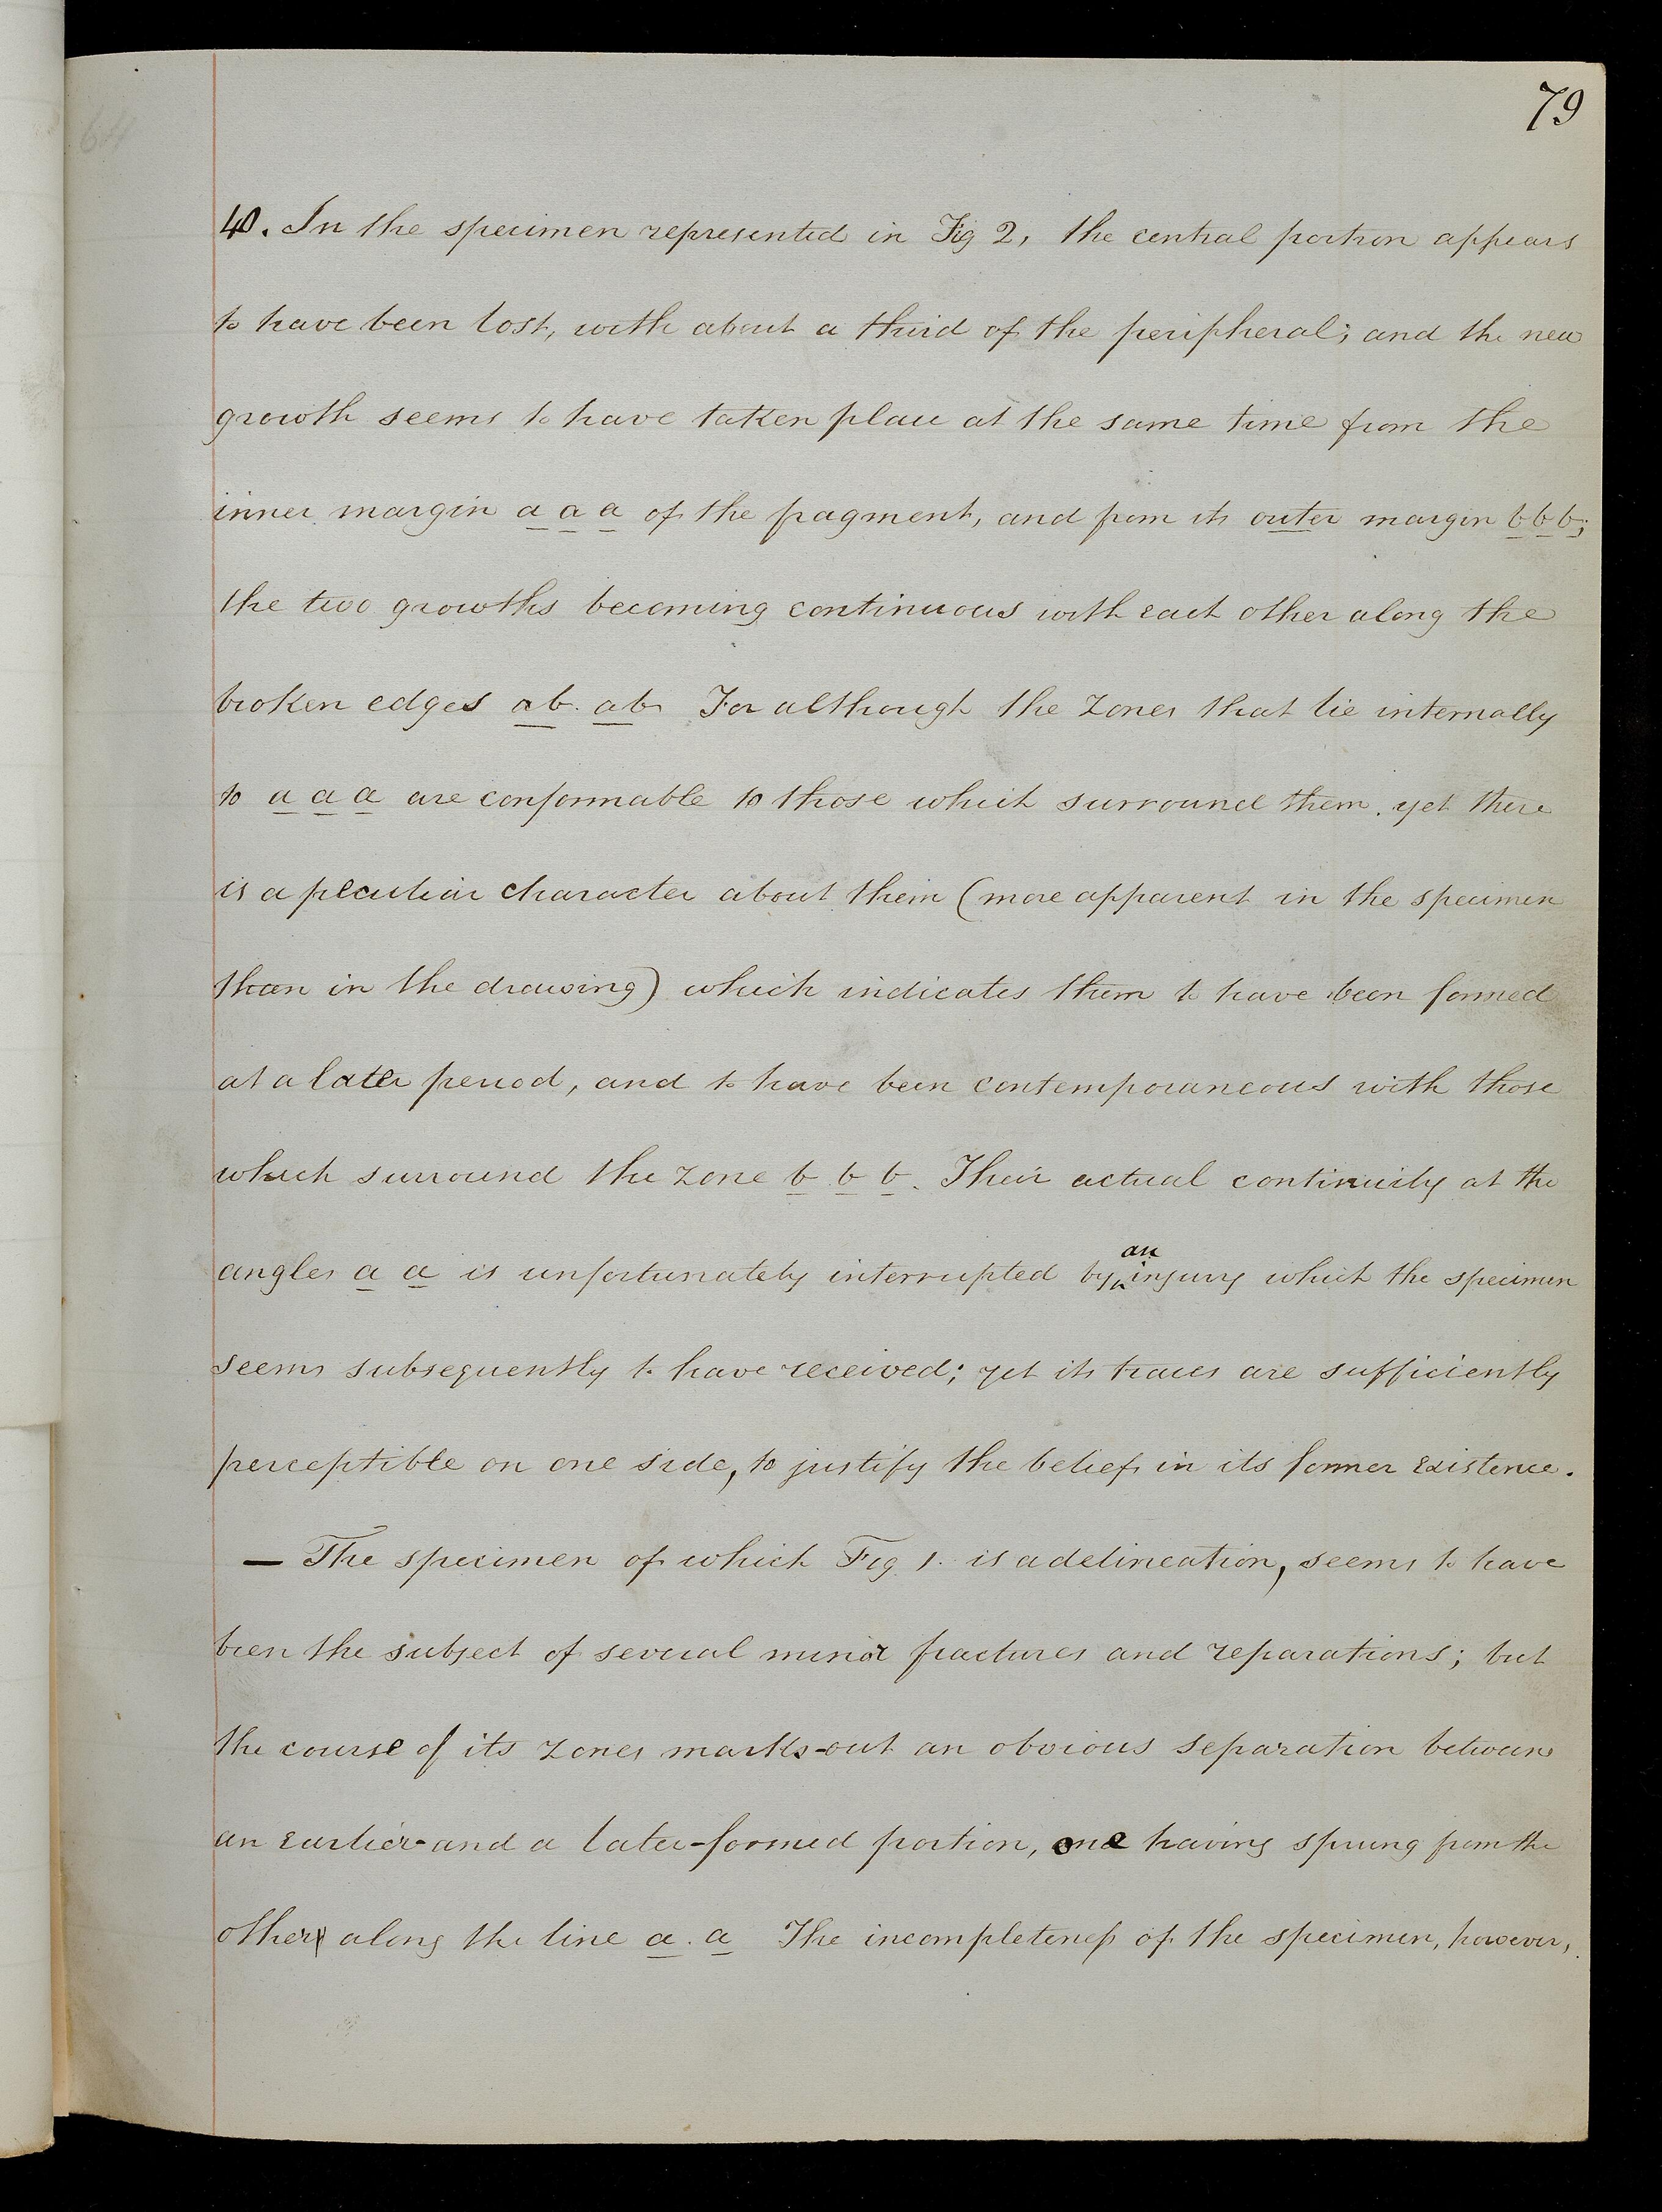 79
40. In the specimen represented in Fig 2, the central portion appears
to have been lost, with about a third of the peripheral; and the new
growth seems to have taken place at the same time from the
inner margin a a a of the fragment, and from its outer margin b b b;
the two growths becoming continuous with each other along the
broken edges ab. ab. For although the zones that lie internally
to a a a are conformable to those which surround them. yet there
is a peculiar character about them (more apparent in the specimen
than in the drawing) which indicates them to have been formed
at a later period, and to have been contemporaneous with those
which surround the zone b b b. Their actual continuity at the
angles a a is unfortunately interrupted by an injury which the specimen
seems subsequently to have received; yet its traces are sufficiently
perceptible on one side, to justify the belief in its former existence.
— The specimen of which Fig 1. is a delineation, seems to have
been the subject of several minor fractures and reparations; but
the course of its zones marks-out an obvious separation between
an earlier-and a later-formed portion, one having sprung from the
other along the line a. a The incompleteness of the specimen, however,